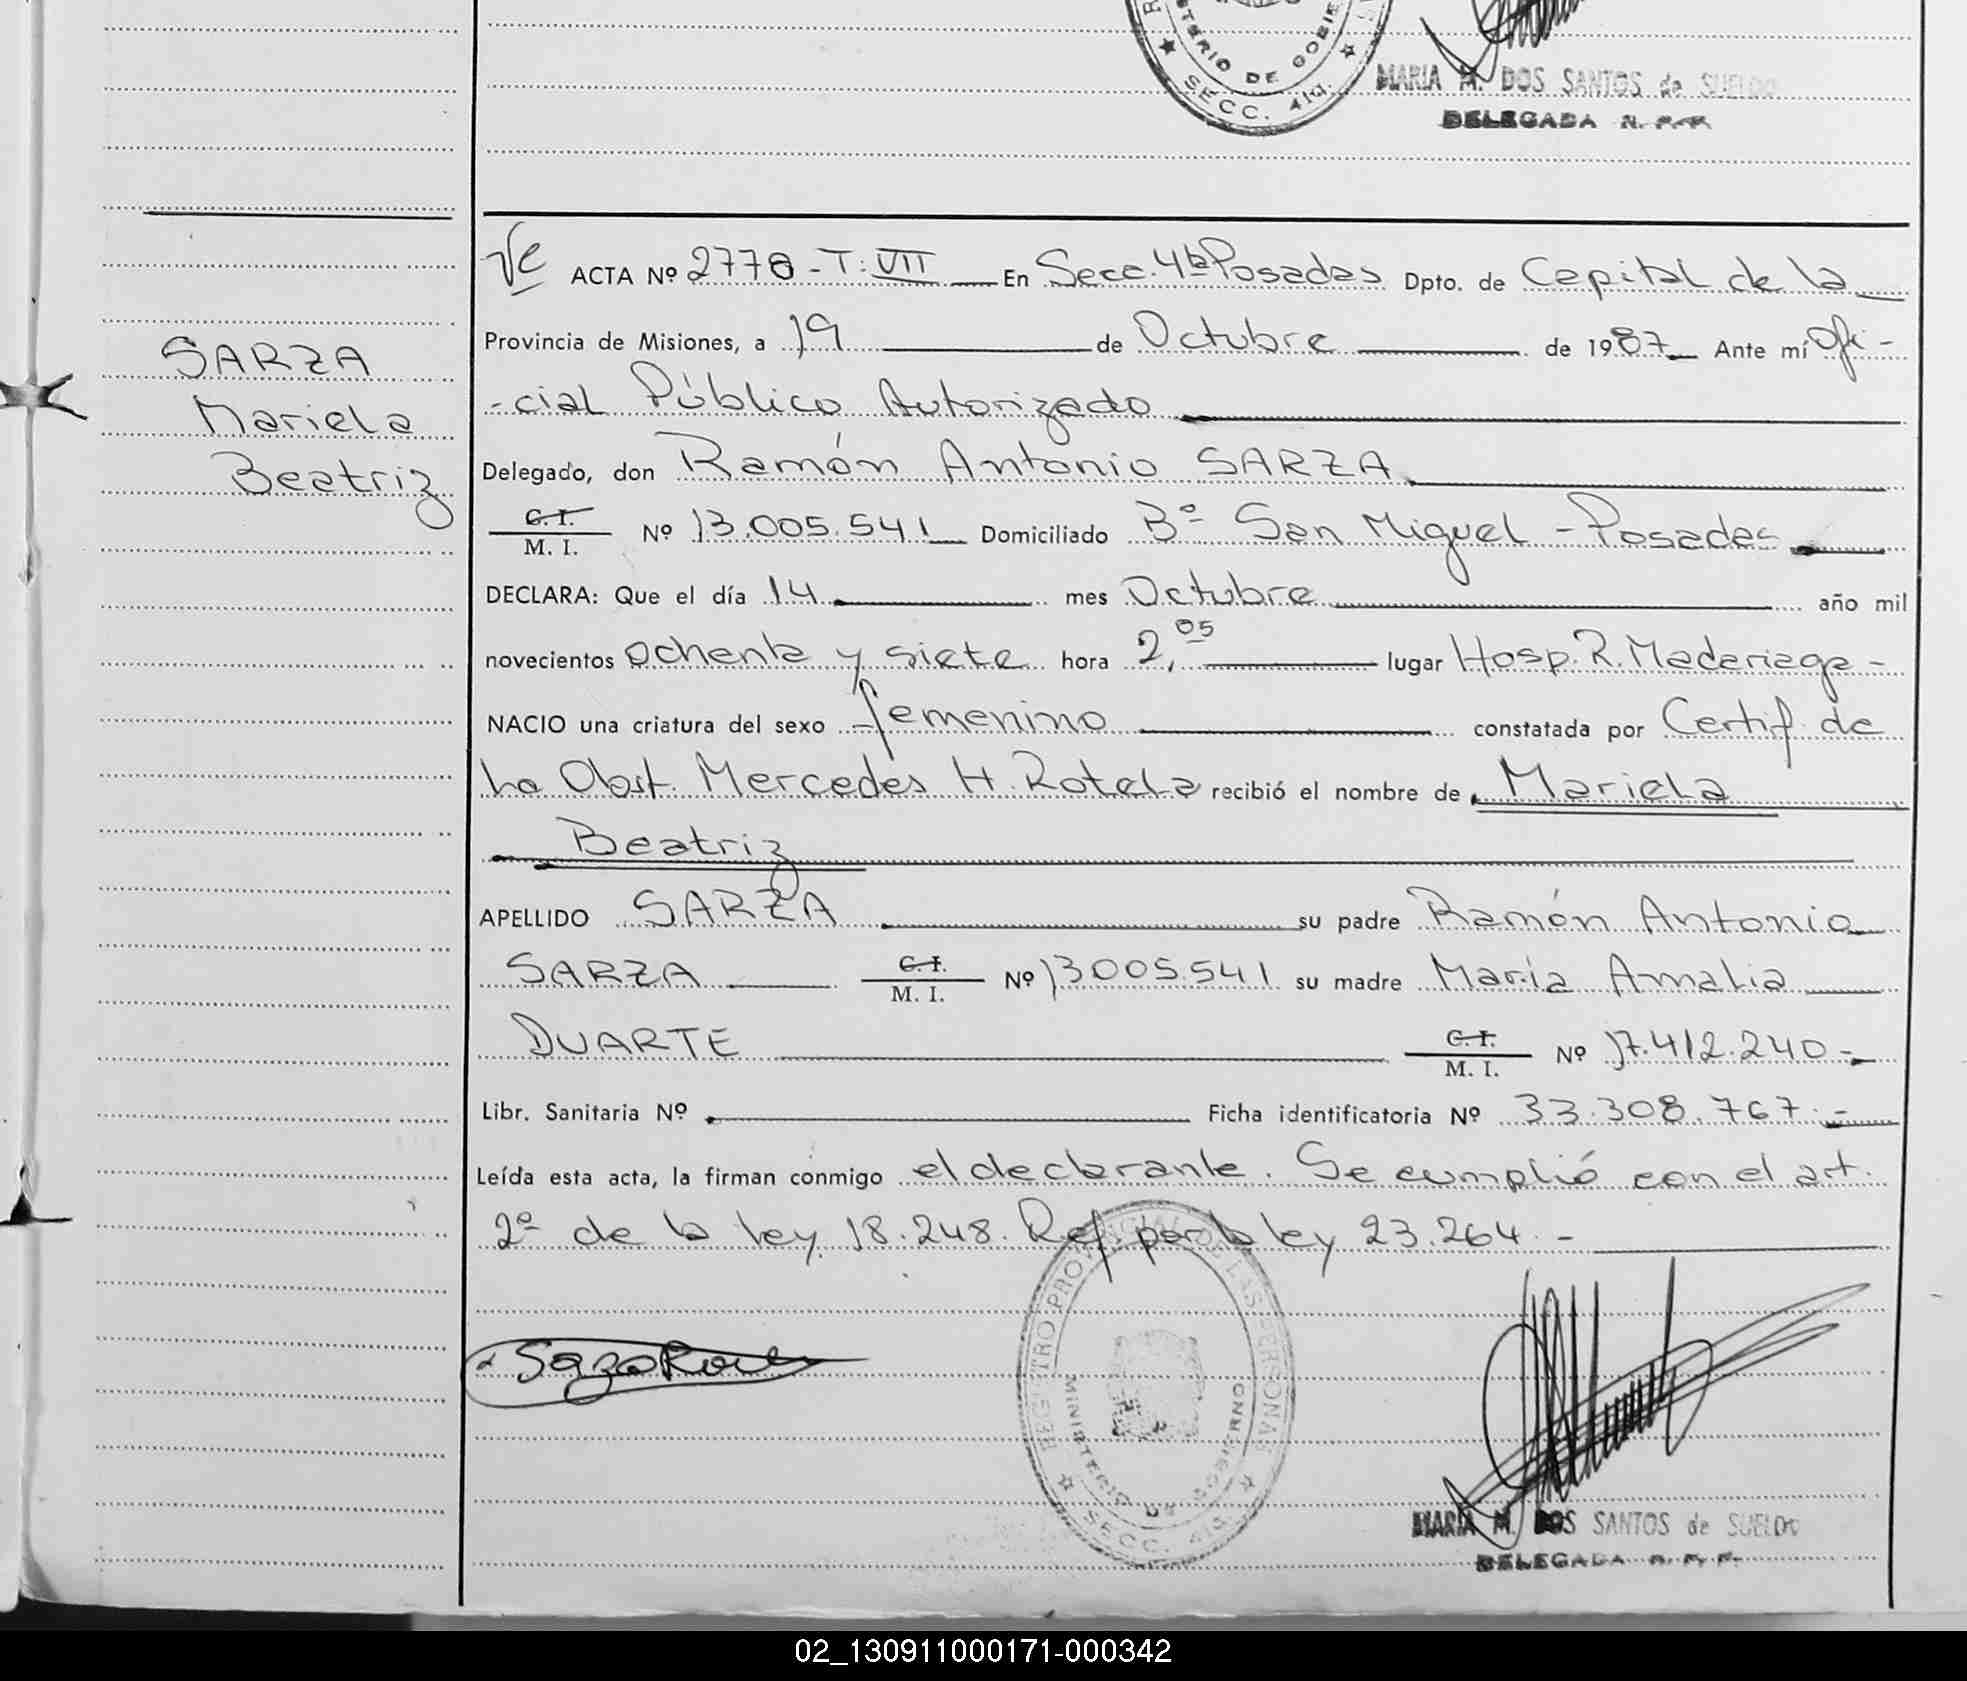 MINISTERIO DE GOBIERNO
SECC. 4ta.
MARIA M. DOS SANTOS de SUELDO
DELEGADA R. P. P.
SARZA
Mariela
Beatriz
ACTA Nº 2778 - T: VII En Secc. 4ta Posadas Dpto. de Capital de la
Provincia de Misiones, a 19 de Octubre de 1987 Ante mí Ofi-
-cial Público Autorizado
Delegado, don Ramón Antonio SARZA
C. I. / M. I. Nº 13.005.541 Domiciliado Bº San Miguel - Posadas
DECLARA: Que el día 14 mes Octubre año mil
novecientos ochenta y siete hora 2,05 lugar Hosp. R. Madariaga -
NACIO una criatura del sexo femenino constatada por Certif. de
la Obst. Mercedes H. Rotela recibió el nombre de Mariela
Beatriz
APELLIDO SARZA su padre Ramón Antonio
SARZA C. I. / M. I. Nº 13005.541 su madre María Amalia
DUARTE C. I. / M. I. Nº 17.412.240 -
Libr. Sanitaria Nº Ficha identificatoria Nº 33.308.767. -
Leída esta acta, la firman conmigo el declarante. Se cumplió con el art.
2º de la ley 18.248. Ref. por la ley 23.264. -
REGISTRO PROVINCIAL DE LAS PERSONAS
MINISTERIO DE GOBIERNO
SECC. 4ta.
MARIA M. DOS SANTOS de SUELDO
DELEGADA R. P. P.
02_130911000171-000342